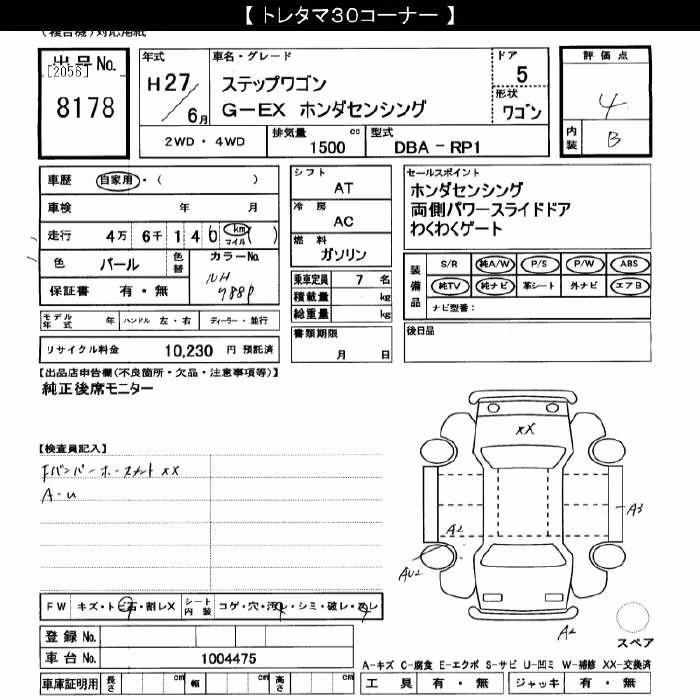 【 トレタマ30コーナー 】
(複合機)対応用紙
出品No.
[2056]
8178
年式
H27/6月
車名・グレード
ステップワゴン
G-EX ホンダセンシング
ドア
5
形状
ワゴン
2WD・4WD
排気量 1500 cc
型式 DBA-RP1
評価点
4
内装 B
車歴 自家用・( )
車検 年 月
走行 4万 6千 1 4 0 (km マイル)
色 パール 色替
カラーNo.
NH
788P
保証書 有・無
モデル年式 年 ハンドル 左・右 ディーラー・並行
リサイクル料金 10,230 円 預託済
シフト
AT
冷房
AC
燃料
ガソリン
乗車定員 7 名
積載量 kg
総重量 kg
書類期限
月 日
セールスポイント
ホンダセンシング
両側パワースライドドア
わくわくゲート
装備品
S/R 純A/W P/S P/W ABS
純TV 純ナビ 革シート 外ナビ エアB
ナビ型番:
後日品
【出品店申告欄(不良箇所・欠品・注意事項等)】
純正後席モニター
【検査員記入】
FバンパーホースメントXX
A-U
XX
A2
A3
AU2
A2
スペア
FW キズ・トビ石・割レX シート内装 コゲ・穴・汚レ・シミ・破レ・スレ
登録No.
車台No. 1004475
車庫証明用 長さ cm 幅 cm 高さ cm
A-キズ C-腐食 E-エクボ S-サビ U-凹ミ W-補修 XX-交換済
工具 有・無 ジャッキ 有・無